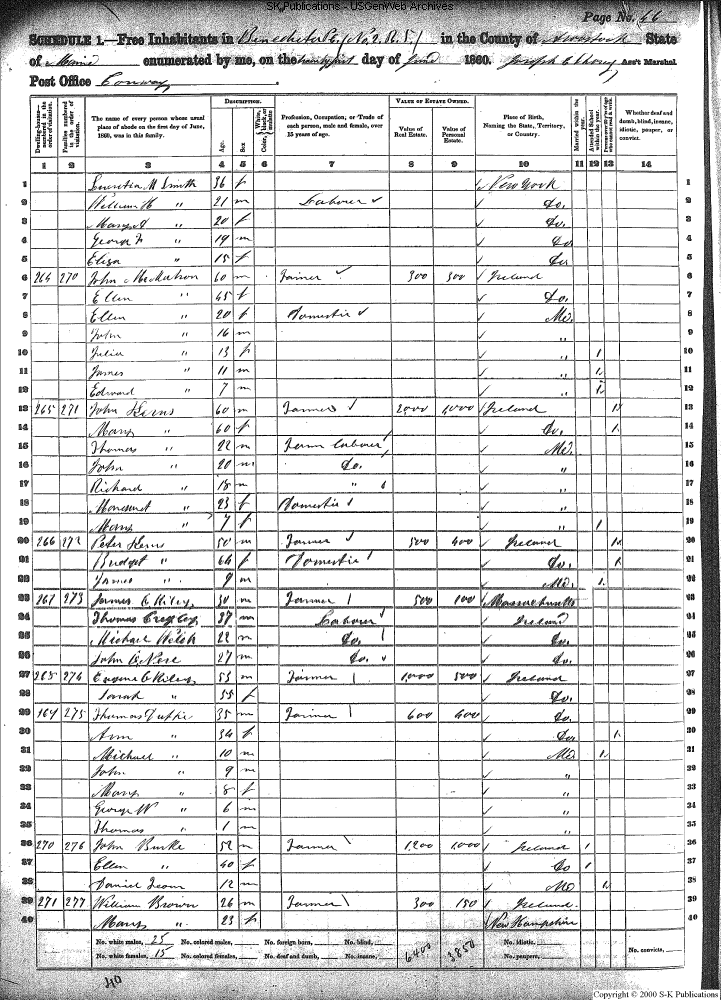 SK Publications - USGenWeb Archives
Page No. 66
SCHEDULE 1.—Free Inhabitants in Benedicta Pl. (No 2. R. 5) in the County of Aroostook State
of Maine enumerated by me, on the twenty first day of June 1860. Ass't Marshal
Post Office Conway
Dwelling-houses—numbered in the order of visitation.
Families numbered in the order of visitation.
The name of every person whose usual place of abode on the first day of June, 1860, was in this family.
DESCRIPTION.
Age.
Sex.
Color, White, black, or mulatto.
Profession, Occupation, or Trade of each person, male and female, over 15 years of age.
VALUE OF ESTATE OWNED.
Value of Real Estate.
Value of Personal Estate.
Place of Birth, Naming the State, Territory, or Country.
Married within the year.
Attended School within the year.
Persons over 20 y'rs of age who cannot read & write.
Whether deaf and dumb, blind, insane, idiotic, pauper, or convict.
1 2 3 4 5 6 7 8 9 10 11 12 13 14
1 Lucretia M Smith 36 f New York 1
2 William H " 21 m Labourer Do. 2
3 Mary A " 20 f Do. 3
4 George F " 19 m Do 4
5 Eliza " 15 f Do 5
6 264 270 John McMahon 60 m Farmer 300 300 Ireland 6
7 Ellen " 45 f Do. 7
8 Ellen " 20 f Domestic Me. 8
9 John " 16 m " 9
10 Julia " 13 f " 1 10
11 James " 11 m " 1 11
12 Edward " 7 m " 1 12
13 265 271 John Kerns 60 m Farmer 2000 4000 Ireland 1 13
14 Mary " 60 f Do. 1 14
15 Thomas " 22 m Farm Labourer Me. 15
16 John " 20 m Do. " 16
17 Richard " 18 m " " 17
18 Margaret " 23 f Domestic " 18
19 Mary " 7 f " 1 19
20 266 272 Peter Kerns 50 m Farmer 500 400 Ireland 1 20
21 Bridget " 64 f Domestic Do. 1 21
22 James " 9 m Me. 1 22
23 267 273 James O Riley 30 m Farmer 500 100 Massachusetts 23
24 Thomas 37 m Labourer Ireland 24
25 Michael Welsh 22 m Do. Do. 25
26 John 27 m Do. Do. 26
27 268 274 Eugene O Riley 53 m Farmer 1000 500 Ireland 27
28 Sarah " 55 f Do. 28
29 169 275 Thomas 35 m Farmer 600 400 Do. 29
30 Ann " 34 f Do 1 30
31 Michael " 10 m Me 1 31
32 John " 9 m " 32
33 Mary " 8 f " 33
34 George W " 6 m " 34
35 Thomas " 1 m " 35
36 270 276 John Burke 52 m Farmer 1,200 1,000 Ireland 1 36
37 Ellen " 40 f Do 1 37
38 Daniel 12 m Me 1 38
39 271 277 William Brown 26 m Farmer 300 150 Ireland 39
40 Mary " 23 f New Hampshire 40
No. white males, 25 No. colored males, No. foreign born, No. blind, 6400 3850 No. idiotic, No. convicts,
No. white females, 15 No. colored females, No. deaf and dumb, No. insane, No. paupers,
40
Copyright © 2000 S-K Publications